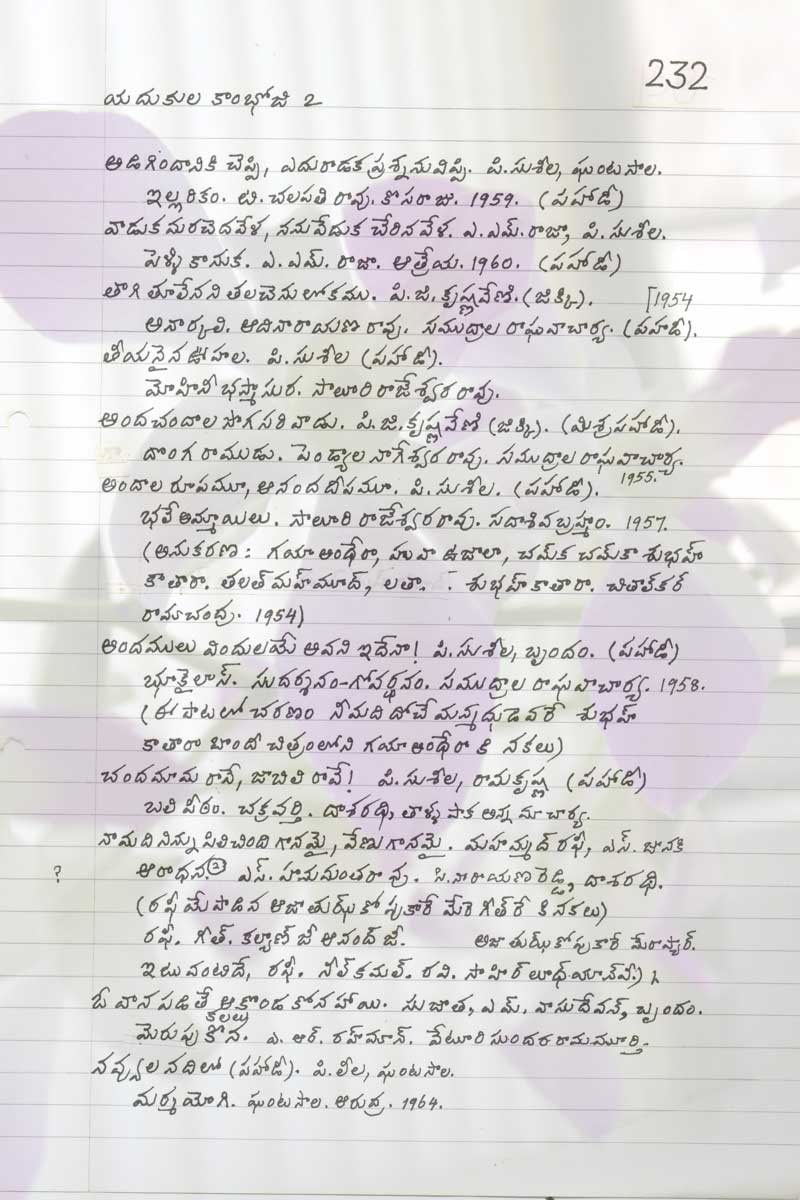 232
యదుకుల కాంభోజి 2
అడిగిందానికి చెప్పి, ఎదురాడక ప్రశ్నను విప్పి. పి.సుశీల, ఘంటసాల.
ఇల్లరికం. టి.చలపతి రావు. కొసరాజు. 1959. (పహాడీ)
వాడుక మరచెదవేళ, నను వేడుక చేరిన వేళ. ఎ.ఎమ్.రాజా, పి.సుశీల.
పెళ్ళి కానుక. ఎ.ఎమ్. రాజా. ఆత్రేయ. 1960. (పహాడీ)
తాగి తూలేనని తలచెను లోకము. పి.జి.కృష్ణవేణి.(జిక్కి). [1954
అనార్కలి. ఆదినారాయణ రావు. సముద్రాల రాఘవాచార్య. (పహాడీ).
తీయనైన ఊహల. పి.సుశీల (పహాడీ).
మోహినీ భస్మాసుర. సాలూరి రాజేశ్వర రావు.
అందచందాల సొగసరివాడు. పి.జి.కృష్ణవేణి (జిక్కి). (మిశ్రపహాడీ).
దొంగ రాముడు. పెండ్యాల నాగేశ్వర రావు. సముద్రాల రాఘవాచార్య.
1955.
అందాల రూపమూ, ఆనంద దీపమూ. పి.సుశీల. (పహాడీ).
భలే అమ్మాయిలు. సాలూరి రాజేశ్వరరావు. సదాశివబ్రహ్మం. 1957.
(అనుకరణ: గయా అంధేరా, హువా ఉజాలా, చమ్‌క చమ్‌కా శుభహ్
కా తారా. తలత్ మహ్మూద్, లతా. శుభహ్ కా తారా. చితాల్కర్
రామచంద్ర. 1954)
అందములు విందులయే అవని ఇదేనా! పి.సుశీల, బృందం. (పహాడీ)
భూకైలాస్. సుదర్శనం-గోవర్ధనం. సముద్రాల రాఘవాచార్య. 1958.
(ఈ పాటలో చరణం నీమది దోచే మన్మధుడెవరే శుభహ్
కా తారా హిందీ చిత్రంలోని గయా అంధేరా కి నకలు)
చందమామ రావే, జాబిలి రావే! పి.సుశీల, రామకృష్ణ (పహాడీ)
బలి పీఠం. చక్రవర్తి. దాశరధి, తాళ్ళపాక అన్నమాచార్య.
నా మది నిన్ను పిలిచింది గానమై, వేణు గానమై. మహమ్మద్ రఫీ, ఎస్. జానకి
? ఆరాధన(2) ఎస్. హనుమంతరావు. సి.నారాయణ రెడ్డి, దాశరధి.
(రఫీ మే పాడిన ఆజా తుఝ్‌కో పుకారే మేరె గీత్ రే కి నకలు)
రఫీ. గీత్. కల్యాణ్ జీ ఆనంద్ జీ. ఆజా తుఝ్‌కో పుకారే మేరా ప్యార్.
ఇటువంటిదే, రఫీ. నీల్ కమల్. రవి. సాహిర్ లూధ్యాన్వీ.)
ఓ వాన పడితే ఆ కొండ కోన హాయి. సుజాత, ఎమ్. వాసుదేవన్, బృందం.
మెరుపు కలలు. ఎ. ఆర్. రహ్మాన్. వేటూరి సుందర రామమూర్తి.
నవ్వుల నదిలో (పహాడీ). పి.లీల, ఘంటసాల.
మర్మయోగి. ఘంటసాల. ఆరుద్ర. 1964.